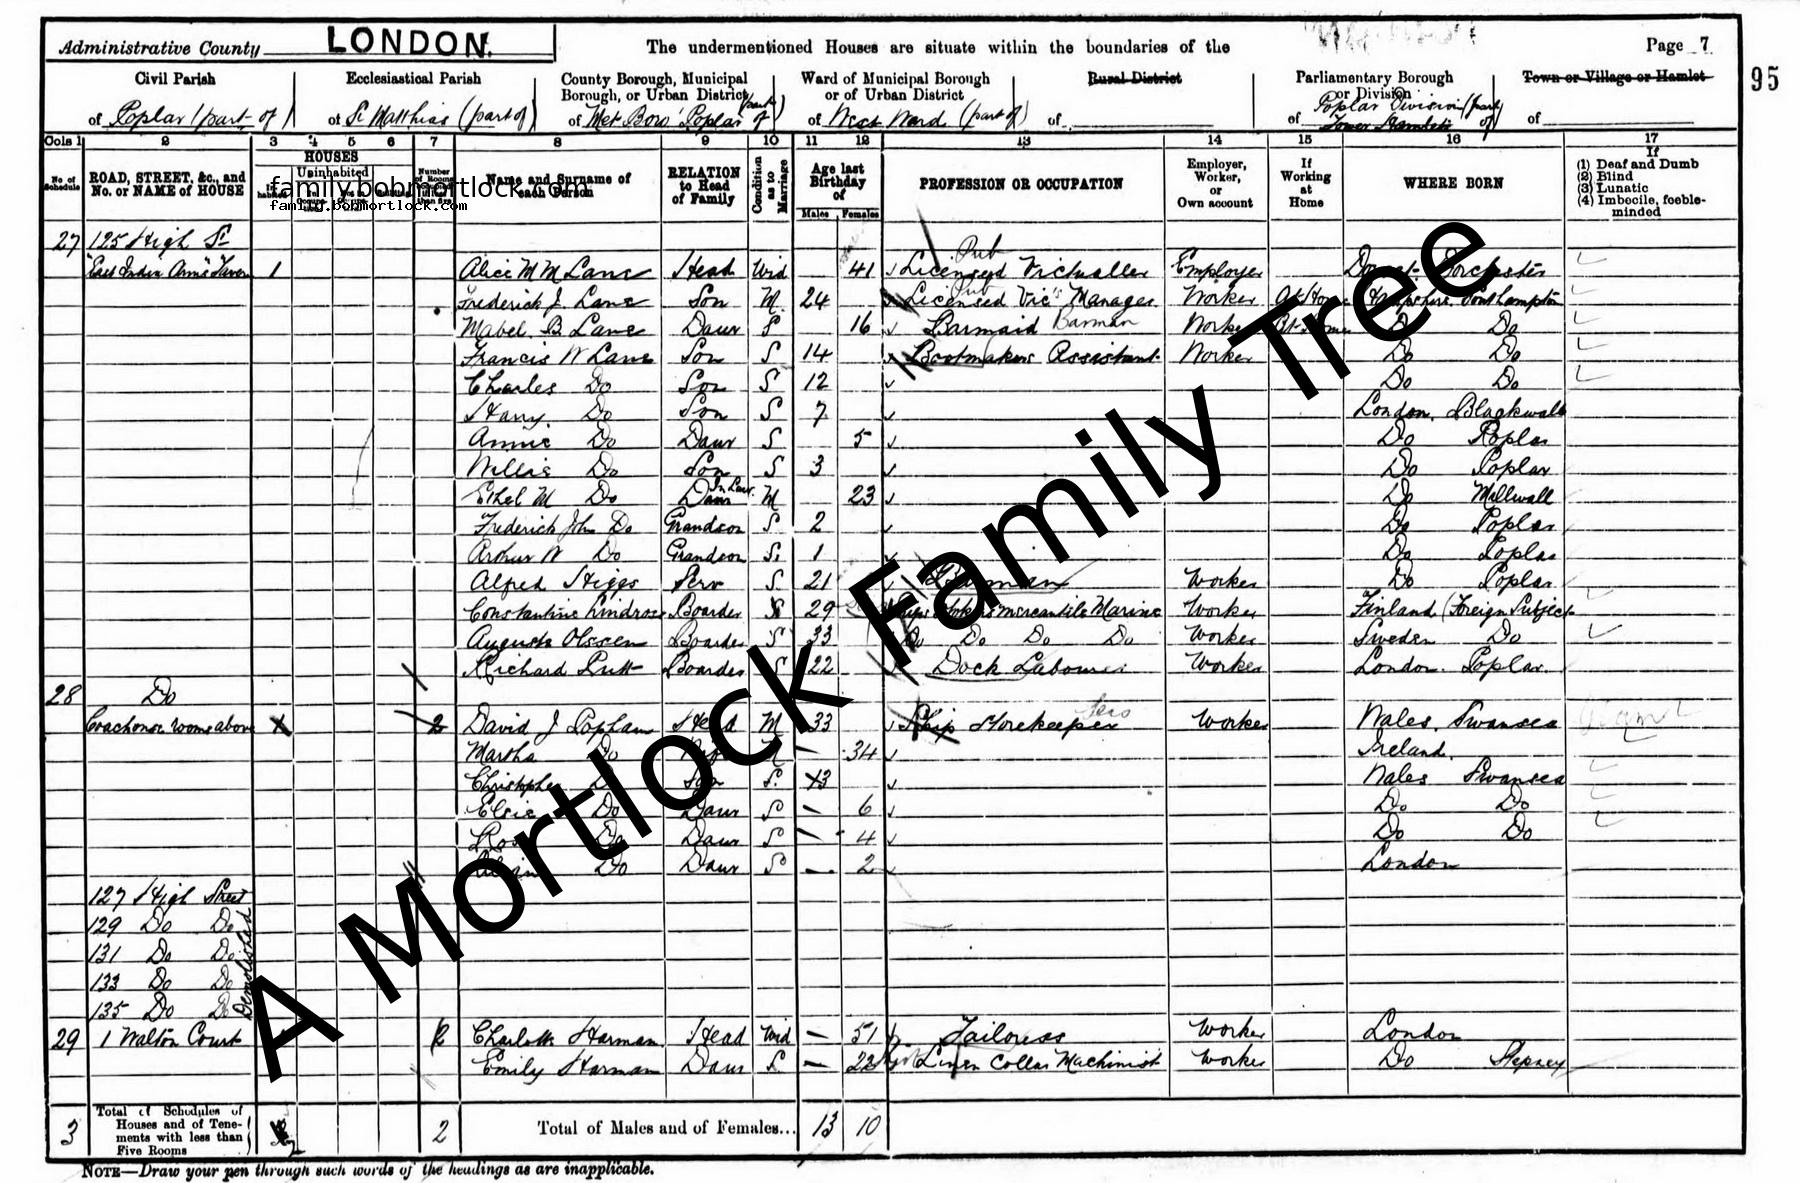 Administrative County LONDON. The undermentioned Houses are situate within the boundaries of the Page 7
95
Civil Parish Ecclesiastical Parish County Borough, Municipal Borough, or Urban District Ward of Municipal Borough or of Urban District Rural District Parliamentary Borough or Division Town or Village or Hamlet
of Poplar (part of) of St Matthias (part of) of Met Boro' Poplar (part of) of West Ward (part of) of of Poplar Division (part of) Tower Hamlets of
Cols 1 2 3 4 5 6 7 8 9 10 11 12 13 14 15 16 17
No. of Schedule ROAD, STREET, &c., and No. or NAME of HOUSE HOUSES Uninhabited Name and Surname of each Person RELATION to Head of Family Condition as to Marriage Age last Birthday of Males Females PROFESSION OR OCCUPATION Employer, Worker, or Own account If Working at Home WHERE BORN If (1) Deaf and Dumb (2) Blind (3) Lunatic (4) Imbecile, feeble-minded
family.bobmortlock.com
family.bobmortlock.com
27 125 High St
"East India Arms" Tavern 1 Alice M M Lane Head Wid 41 Licensed Victualler Pub Employer Dorset Dorchester
Frederick J. Lane Son M. 24 Licensed Vic's Manager Pub Worker At Home Hampshire, Southampton
Mabel B Lane Daur S 16 Barmaid Barman Worker At Home Do Do
Francis W Lane Son S 14 Bootmakers Assistant Worker Do Do
Charles Do Son S 12 Do Do
Harry Do Son S 7 London, Blackwall
Annie Do Daur S 5 Do Poplar
Willis Do Son S 3 Do Poplar
Ethel M Do Daur In Law M 23 Do Millwall
Frederick John Do Grandson S. 2 Do Poplar
Arthur W Do Grandson S. 1 Do Poplar
Alfred Higgs Serv S. 21 Barman Worker Do Poplar
Constantine Lindross Boarder S 29 Mercantile Marine Worker Finland (Foreign Subject
August Olssen Boarder S 33 Do Do Do Do Worker Sweden Do
Richard Putt Boarder S 22 Dock Labourer Worker London. Poplar.
28 Do
Coachouse rooms above 2 David J Popham Head M 33 Ship Storekeeper Worker Wales. Swansea
Martha Do Wife M 34 Ireland.
Christopher Do Son S. 13 Wales Swansea
Elsie Do Daur S 6 Do Do
Do Daur S 4 Do Do
Do Daur S 2 London
127 High Street
129 Do Do
131 Do Do
133 Do Do
135 Do Do
Demolished
29 1 Walton Court 2 Charlotte Harman Head Wid 51 Tailoress Worker London
Emily Harman Daur S. 22 Linen Collar Machinist Worker Do Stepney
3 Total of Schedules of Houses and of Tenements with less than Five Rooms 2 2 Total of Males and of Females... 13 10
NOTE—Draw your pen through such words of the headings as are inapplicable.
A Mortlock Family Tree